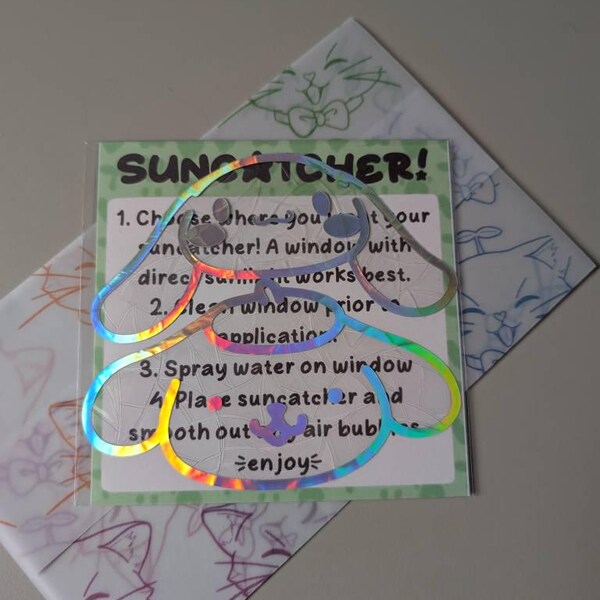 SUNCATCHER!
1. Choose where you want your
suncatcher! A window with
direct sunlight works best.
2. Clean window prior to
application.
3. Spray water on window
4. Place suncatcher and
smooth out any air bubbles
enjoy